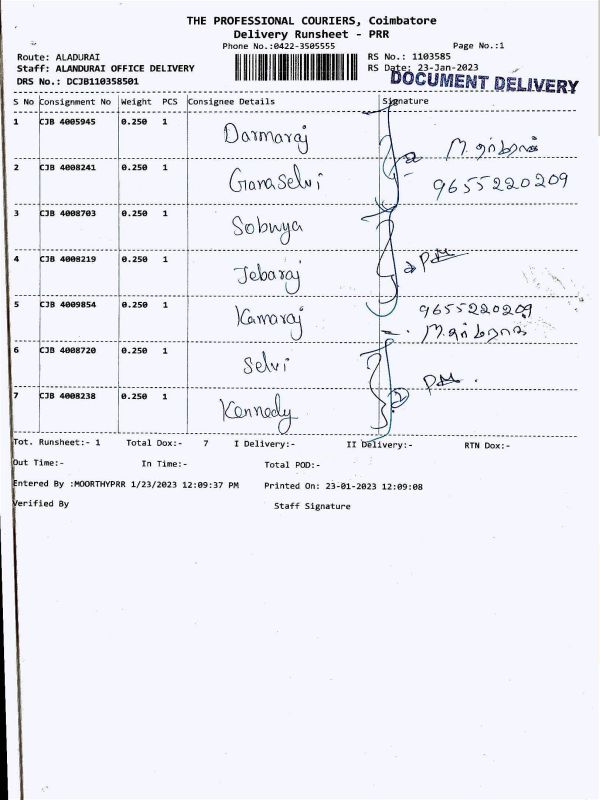 THE PROFESSIONAL COURIERS, Coimbatore
Delivery Runsheet - PRR
Phone No.:0422-3505555 Page No.:1
Route: ALADURAI RS No.: 1103585
Staff: ALANDURAI OFFICE DELIVERY RS Date: 23-Jan-2023
DRS No.: DCJB110358501 DOCUMENT DELIVERY
S No Consignment No Weight PCS Consignee Details Signature
1 CJB 4005945 0.250 1 Darmaraj
2 CJB 4008241 0.250 1 GanaSelvi 9655220209
3 CJB 4008703 0.250 1 Sobuya
4 CJB 4008219 0.250 1 Jebaraj
5 CJB 4009854 0.250 1 Kamaraj 9655220209
6 CJB 4008720 0.250 1 Selvi
7 CJB 4008238 0.250 1 Kennedy
Tot. Runsheet:- 1 Total Dox:- 7 I Delivery:- II Delivery:- RTN Dox:-
Out Time:- In Time:- Total POD:-
Entered By :MOORTHYPRR 1/23/2023 12:09:37 PM Printed On: 23-01-2023 12:09:08
Verified By Staff Signature